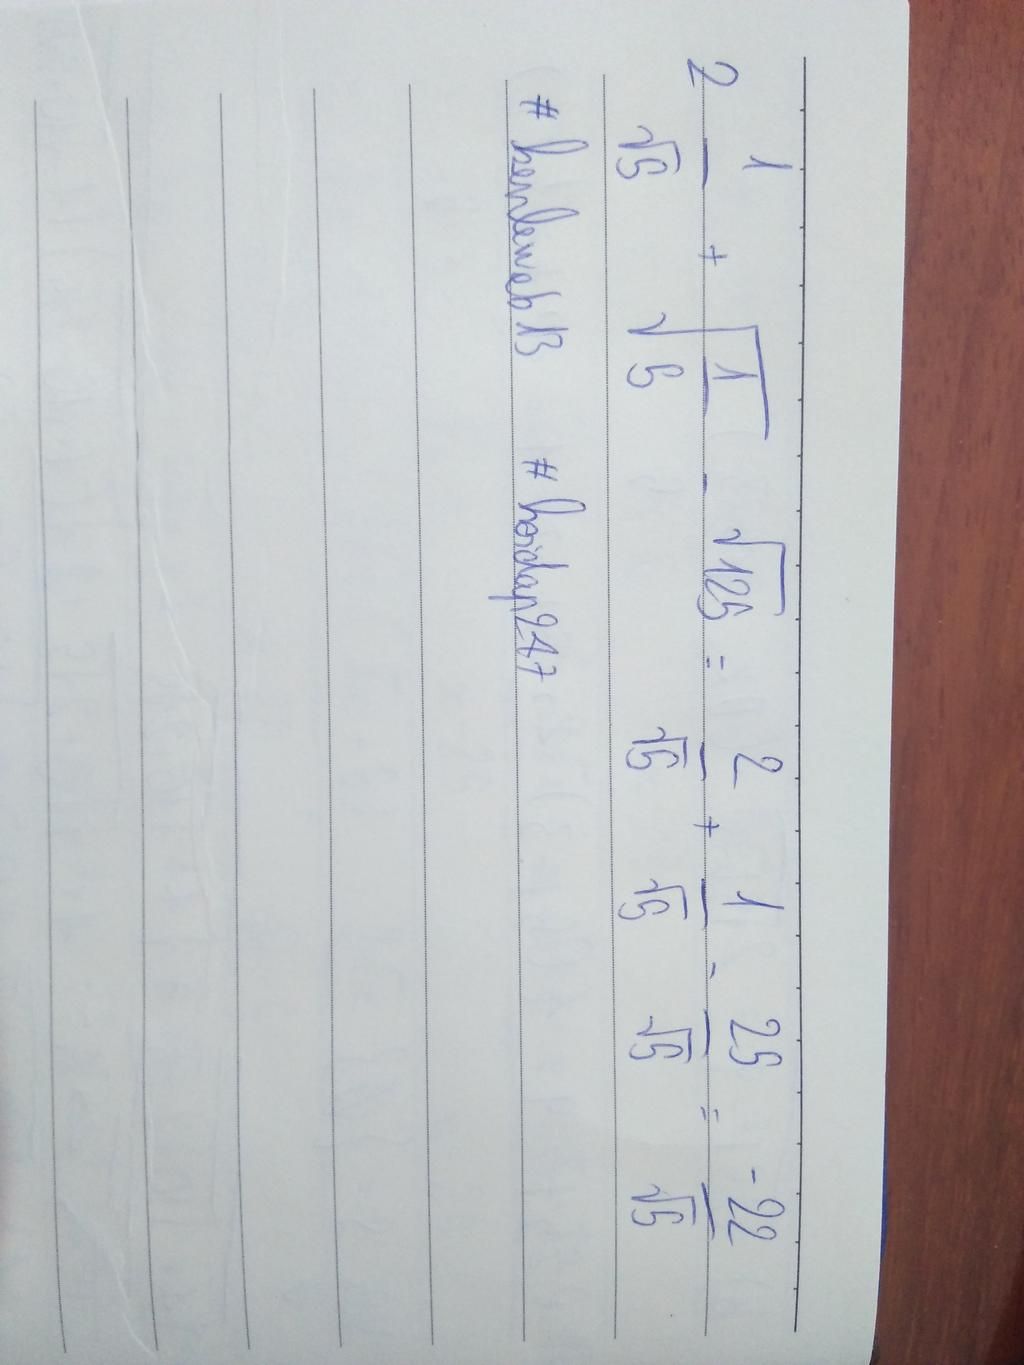 2 1/√5 + √(1/5) - √125 = 2/√5 + 1/√5 - 25/√5 = -22/√5
# kenleweb13 # hoidap247